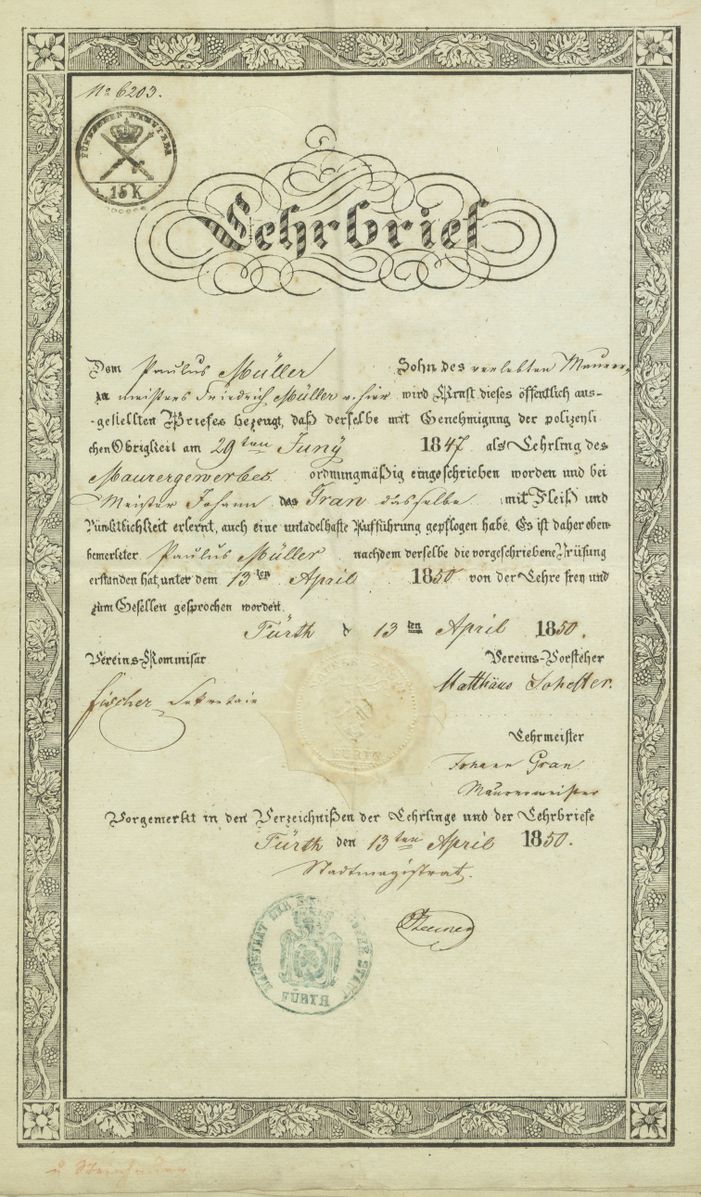 No 6203.
15 K
Lehrbrief
Dem Paulus Müller Sohn des verlebten Maurer-
meisters Friedrich Müller v. hier wird Kraft dieses öffentlich aus-
gestellten Briefes bezeugt, daß derselbe mit Genehmigung der polizeyli-
chen Obrigkeit am 29ten Juny 1847 als Lehrling des
Maurergewerbes ordnungmäßig eingeschrieben worden und bei
Meister Johann Gran dasselbe mit Fleiß und
Pünktlichkeit erlernt, auch eine untadelhafte Aufführung gepflogen habe. Es ist daher oben-
bemerkter Paulus Müller nachdem derselbe die vorgeschriebene Prüfung
erstanden hat, unter dem 13ten April 1850 von der Lehre frey und
zum Gesellen gesprochen worden.
Fürth d 13ten April 1850.
Vereins-Kommisär Vereins-Vorsteher
Fischer Sekretair Matthäus
Lehrmeister
Johann Gran
Maurermeister
Vorgemerkt in den Verzeichnißen der Lehrlinge und der Lehrbriefe
Fürth den 13ten April 1850.
Stadtmagistrat.
MAGISTRAT DER STADT
FÜRTH